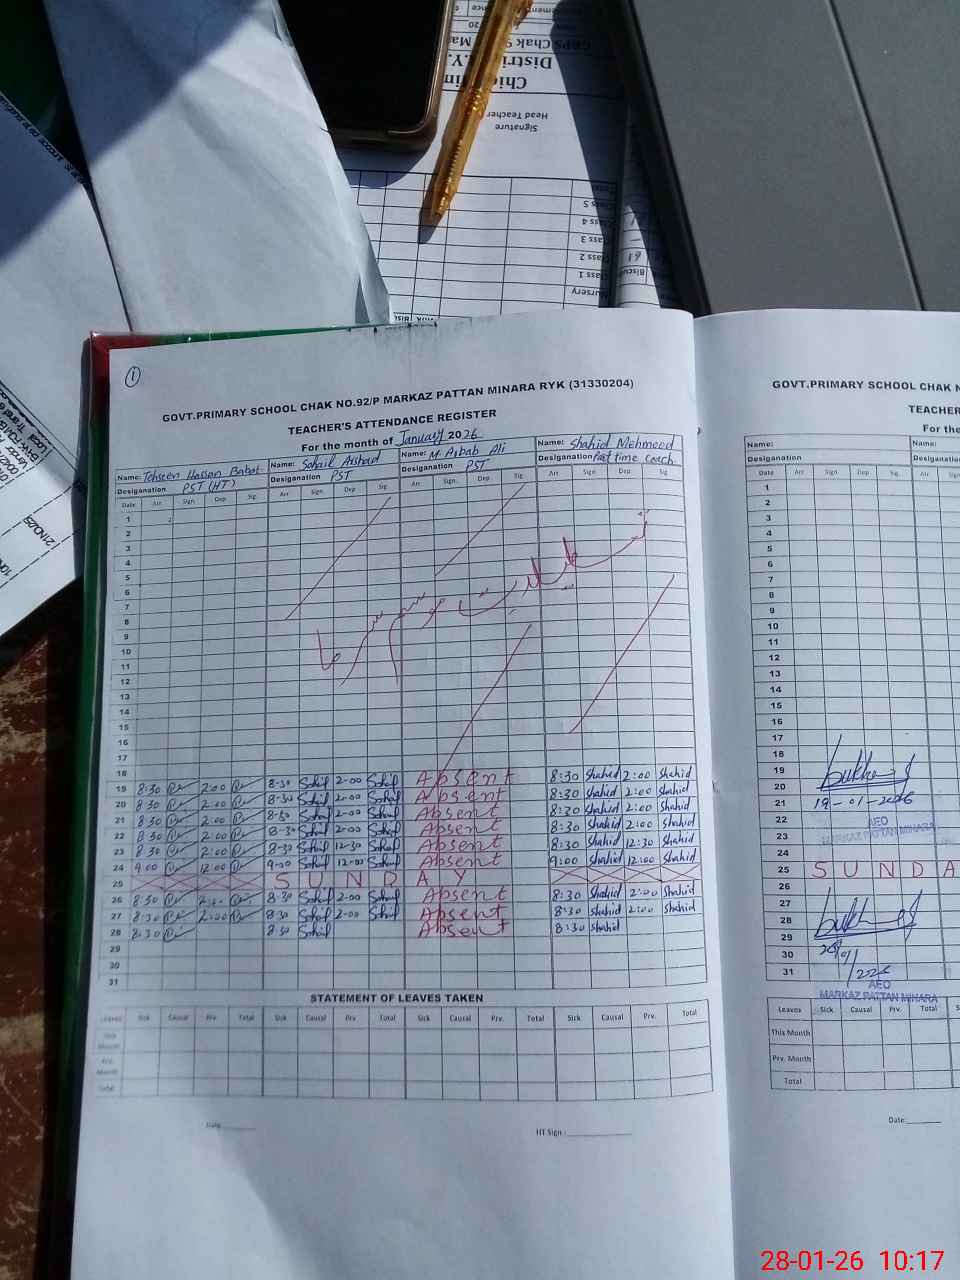 Signature
Head Teacher
Class 5
Class 4
Class 3
Class 2
Class 1
Nursery
19
1
GOVT.PRIMARY SCHOOL CHAK NO.92/P MARKAZ PATTAN MINARA RYK (31330204)
TEACHER'S ATTENDANCE REGISTER
For the month of January 2026
Name: Tehseen Hassan Babat Name: Sohail Arshad Name: M Arbab Ali Name: Shahid Mehmood
Desiganation PST (HT) Desiganation PST Desiganation PST Desiganation Part time coach
Date Arr Sign Dep Sig Arr Sign Dep Sig Arr Sign. Dep. Sig Arr Sign Dep Sig
1
2
3
4
5
6
7
8
9
10
11
12
13
14
15
16
17
تعطیلات موسم سرما
18 Absent
19 8:30 2:00 8-30 Sohail 2-00 Sohail Absent 8:30 Shahid 2:00 Shahid
20 8:30 2:00 8-30 Sohail 2-00 Sohail Absent 8:30 Shahid 2:00 Shahid
21 8:30 2:00 8-30 Sohail 2-00 Sohail Absent 8:30 Shahid 2:00 Shahid
22 8:30 2:00 8-30 Sohail 2-00 Sohail Absent 8:30 Shahid 2:00 Shahid
23 8:30 2:00 8-30 Sohail 12-30 Sohail Absent 8:30 Shahid 12:30 Shahid
24 9:00 12:00 9-00 Sohail 12-00 Sohail 9:00 Shahid 12:00 Shahid
25 SUNDAY
26 8:30 2:00 8-30 Sohail 2-00 Sohail Absent 8:30 Shahid 2:00 Shahid
27 8:30 2:00 8-30 Sohail 2-00 Sohail Absent 8:30 Shahid 2:00 Shahid
28 8:30 8:30 Sohail Absent 8:30 Shahid
29
30
31
STATEMENT OF LEAVES TAKEN
Leaves Sick Causal Prv. Total Sick Causal Prv Total Sick Causal Prv. Total Sick Causal Prv. Total
This Month
Prv. Month
Total
Date:
HT Sign :
GOVT.PRIMARY SCHOOL CHAK
TEACHER
For the
Name: Name:
Desiganation Desiganation
Date Arr Sign Dep Sig. Arr
1
2
3
4
5
6
7
8
9
10
11
12
13
14
15
16
17
18
19
20
21 19-01-2026
22 AEO
23 MARKAZ PATTAN MINARA
24
25 SUNDA
26
27
28
29
30
31
AEO
MARKAZ PATTAN MINARA
Leaves Sick Causal Prv. Total
This Month
Prv. Month
Total
Date:
28-01-26 10:17